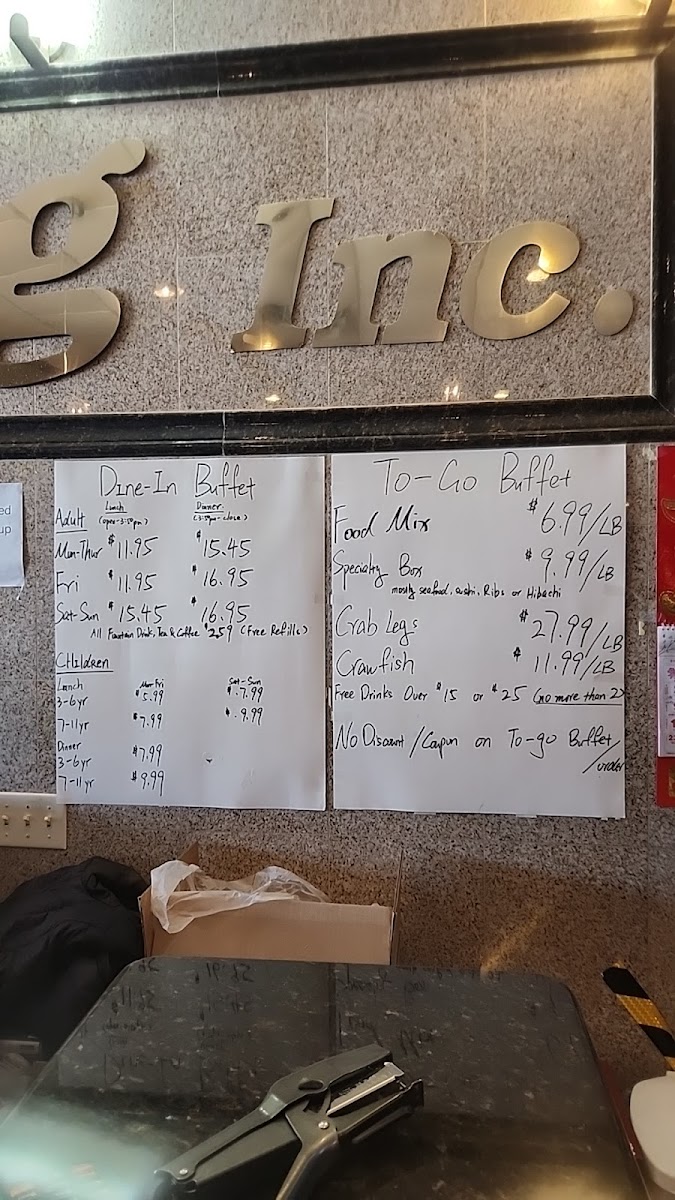 g Inc.
ed
up
Dine-In Buffet
Lunch Dinner
Adult (open-3:30pm) (3:30pm-close)
Mon-Thur $11.95 $15.45
Fri $11.95 $16.95
Sat-Sun $15.45 $16.95
All Fountain Drink, Tea & Coffee $2.59 (Free Refills)
CHildren
Lunch Mon-Fri Sat-Sun
3-6yr $5.99 $7.99
7-11yr $7.99 $9.99
Dinner
3-6yr $7.99
7-11yr $9.99
To-Go Buffet
Food Mix $6.99/LB
Specialty Box $9.99/LB
mostly seafood, sushi, Ribs or Hibachi
Crab Legs $27.99/LB
Crawfish $11.99/LB
Free Drinks Over $15 or $25 (no more than 2)
No Discount/Coupon on To-go Buffet
/order